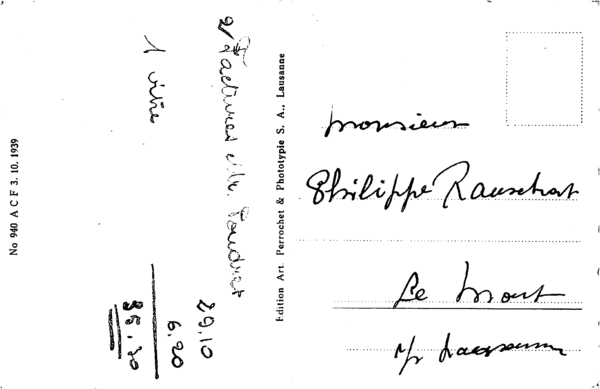 No 940 A C F 3. 10. 1939
Factures 29.10
1 vitre 6.20
35.30
Edition Art. Perrochet & Phototypie S. A., Lausanne
Monsieur
Philippe
Le Mont
s/ Lausanne